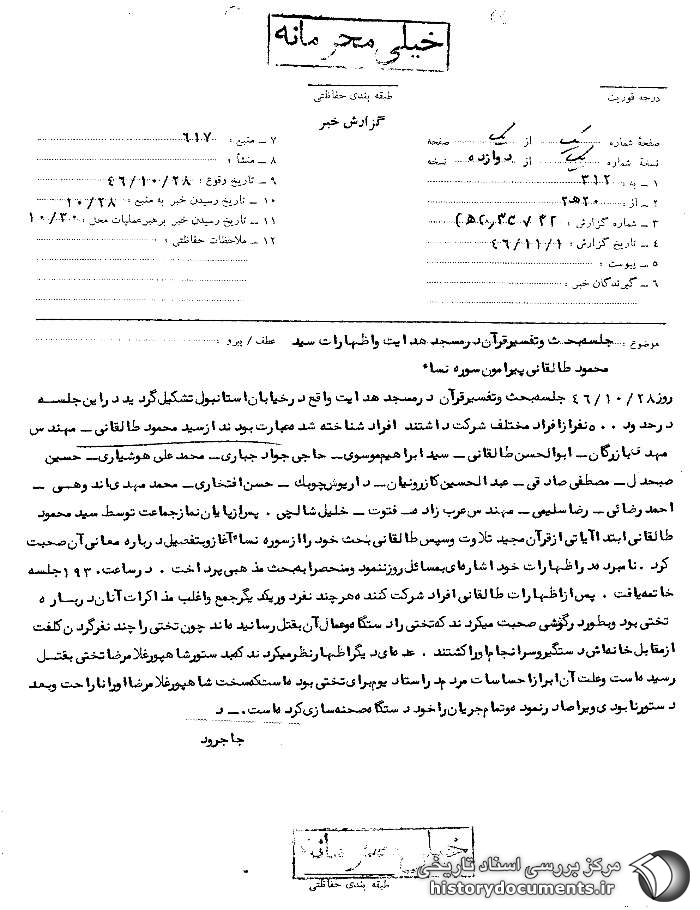 خیلی محرمانه
درجه فوریت
طبقه بندی حفاظتی
گزارش خبر
صفحهٔ شماره یک از یک صفحه
نسخهٔ شماره یک از دوازده نسخه
۱ ـ به : ۳۱۲
۲ ـ از : ۲۰ه۲
۳ ـ شماره گزارش :
۴ ـ تاریخ گزارش : ۴۶/۱۱/۱
۵ ـ پیوست :
۶ ـ گیرندگان خبر :
۷ ـ منبع : ۶۱۷
۸ ـ منشأ :
۹ ـ تاریخ وقوع : ۴۶/۱۰/۲۸
۱۰ ـ تاریخ رسیدن خبر به منبع : ۱۰/۲۸
۱۱ ـ تاریخ رسیدن خبر برهبرعملیات محل : ۱۰/۳۰
۱۲ ـ ملاحظات حفاظتی :
موضوع : جلسه بحث وتفسیرقرآن درمسجد هدایت واظهارات سید عطف / پیرو :
محمود طالقانی پیرامون سوره نساء
روز ۴۶/۱۰/۲۸ جلسه بحث وتفسیرقرآن درمسجد هدایت واقع درخیابان استانبول تشکیل گردید دراین جلسه
درحدود ۵۰۰ نفرازافراد مختلف شرکت داشتند افراد شناخته شده عبارت بودند ازسید محمود طالقانی ـ مهندس
مهدی بازرگان ـ ابوالحسن طالقانی ـ سید ابراهیم موسوی ـ حاجی جواد جباری ـ محمد علی هوشیاری ـ حسین
صبحدل ـ مصطفی صادقی ـ عبدالحسین کازرونیان ـ داریوش چوبک ـ حسن افتخاری ـ محمد مهدی اندوهی ـ
احمد رضائی ـ رضا سلیمی ـ مهندس عرب زاده ـ فتوت ـ خلیل شالچی . پس ازپایان نمازجماعت توسط سید محمود
طالقانی ابتدا آیاتی ازقرآن مجید تلاوت وسپس طالقانی بحث خود را ازسوره نساء آغاز وبتفصیل درباره معانی آن صحبت
کرد . نامبرده دراظهارات خود اشاره ای بمسائل روزننمود ومنحصرا به بحث مذهبی پرداخت . درساعت ۱۹۳۰ جلسه
خاتمه یافت . پس ازاظهارات طالقانی افراد شرکت کننده هرچند نفر دوریکدیگر جمع واغلب مذاکرات آنان درباره
تختی بود وبطور درگوشی صحبت میکردند که تختی را دستگاه وعمال آن بقتل رسانیده اند چون تختی را چند نفرگردن کلفت
ازمقابل خانه اش دستگیروسرانجام اورا کشتند . عده ای دیگراظهارنظرمیکردند که بدستورشاهپورغلامرضا تختی بقتل
رسیده است وعلت آن ابرازاحساسات مردم دراستادیوم برای تختی بوده است که سخت شاهپورغلامرضا را ناراحت وبعد
دستورنابودی ویرا صادرنموده وتمام جریان را خود دستگاه صحنه سازی کرده است . ـ د
جاجرود
خیلی محرمانه
طبقه بندی حفاظتی
مرکز بررسی اسناد تاریخی
historydocuments.ir